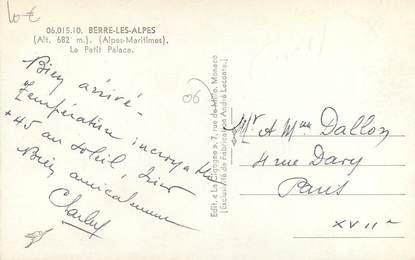 10 €
06.015.10. BERRE-LES-ALPES
(Alt. 682 m.). (Alpes-Maritimes).
Le Petit Palace.
Bien arrivé -
Température incroyable
+45 au soleil, hier
Bien amicalement
Charley
06
Edit. « La Cigogne », 7, rue de Millo, Monaco
(Exclusivité de Fabrication André Leconte.)
Mr A Mme Dallon
4 rue Davy
Paris
XVII e